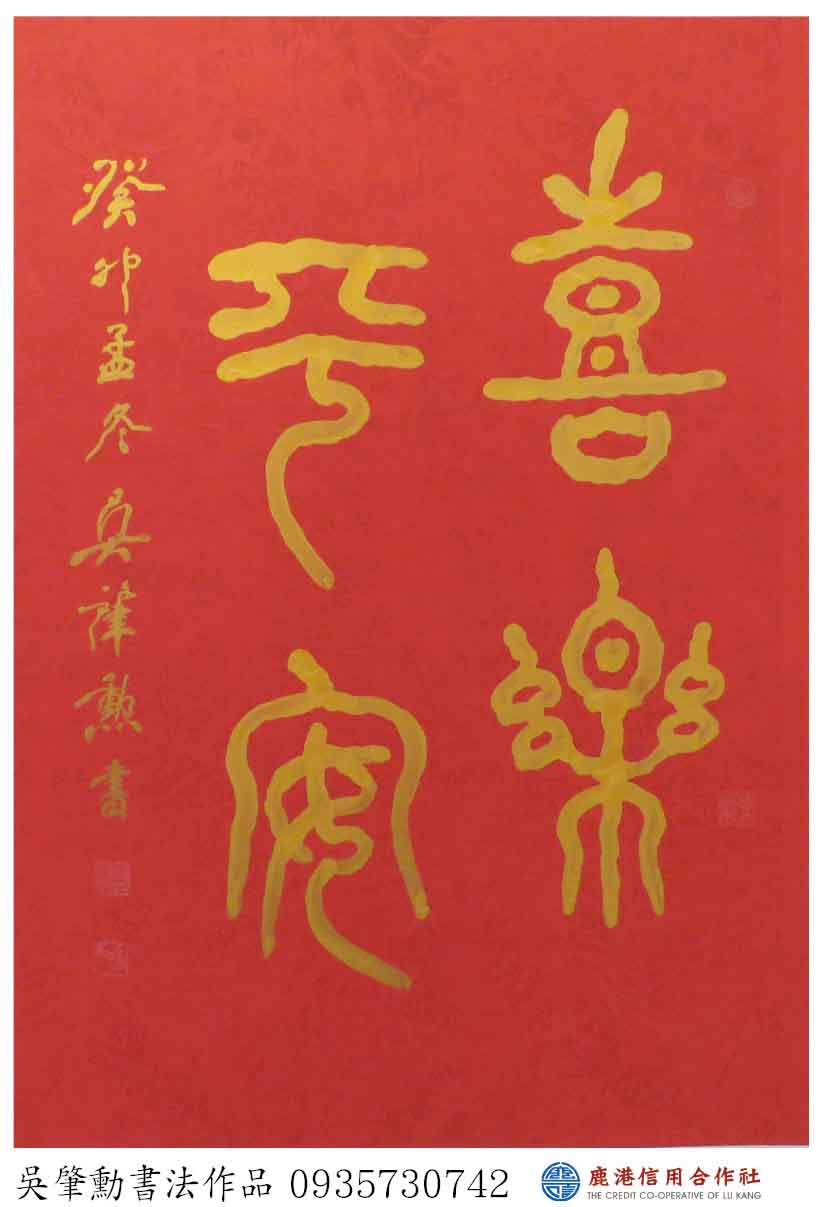 喜樂
平安
癸卯孟冬 吳肇勳書
吳肇勳書法作品 0935730742
鹿港信用合作社
THE CREDIT CO-OPERATIVE OF LU KANG